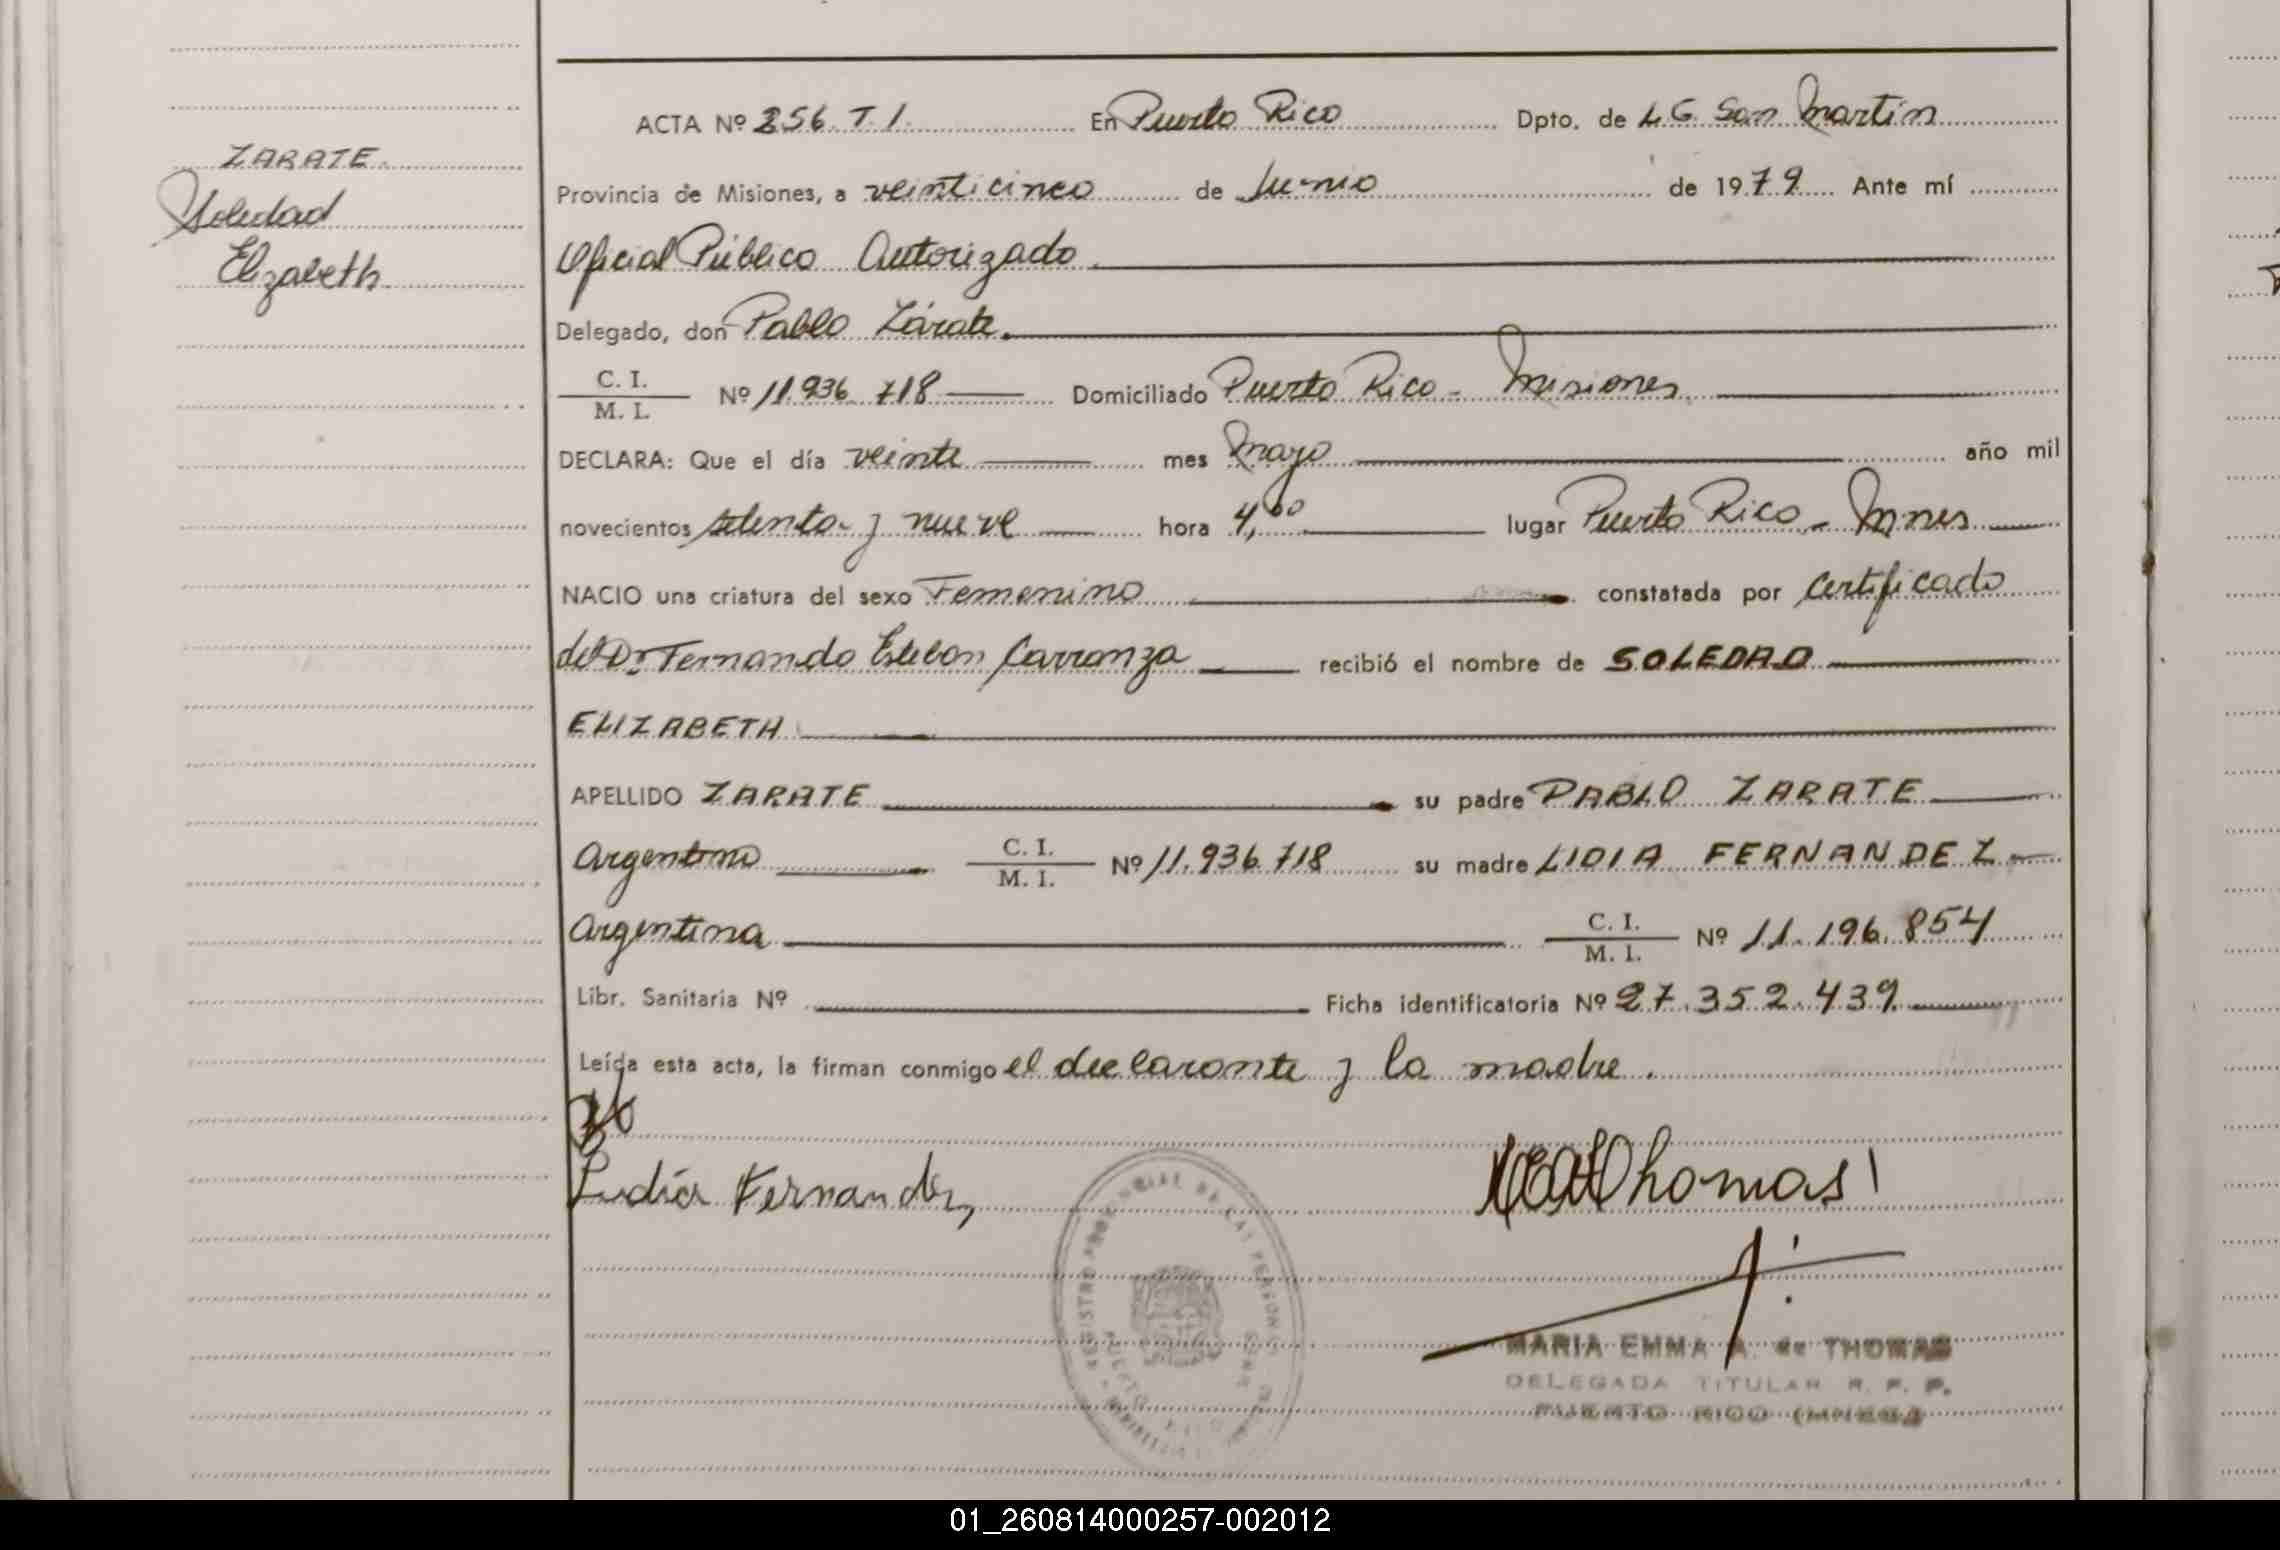 ZARATE
Soledad
Elizabeth
ACTA Nº 256 T. I. En Puerto Rico Dpto. de L G San Martin
Provincia de Misiones, a veinticinco de Junio de 1979 Ante mí
Oficial Público Autorizado
Delegado, don Pablo Zárate.
C. I.
M. I. Nº 11.936.718 Domiciliado Puerto Rico - Misiones
DECLARA: Que el día veinte mes mayo año mil
novecientos setenta y nueve hora 4,00 lugar Puerto Rico - Mnes
NACIO una criatura del sexo Femenino constatada por Certificado
del Dr Fernando Esteban Carranza recibió el nombre de SOLEDAD
ELIZABETH
APELLIDO ZARATE su padre PABLO ZARATE
Argentino C. I. M. I. Nº 11.936.718 su madre LIDIA FERNANDEZ
Argentina C. I. M. I. Nº 11.196.854
Libr. Sanitaria Nº Ficha identificatoria Nº 27.352.439
Leída esta acta, la firman conmigo el declarante y la madre.
Lidia Fernandez
Thomas
MARIA EMMA A. de THOMAS
DELEGADA TITULAR R. P. P.
PUERTO RICO (MNES.)
01_260814000257-002012